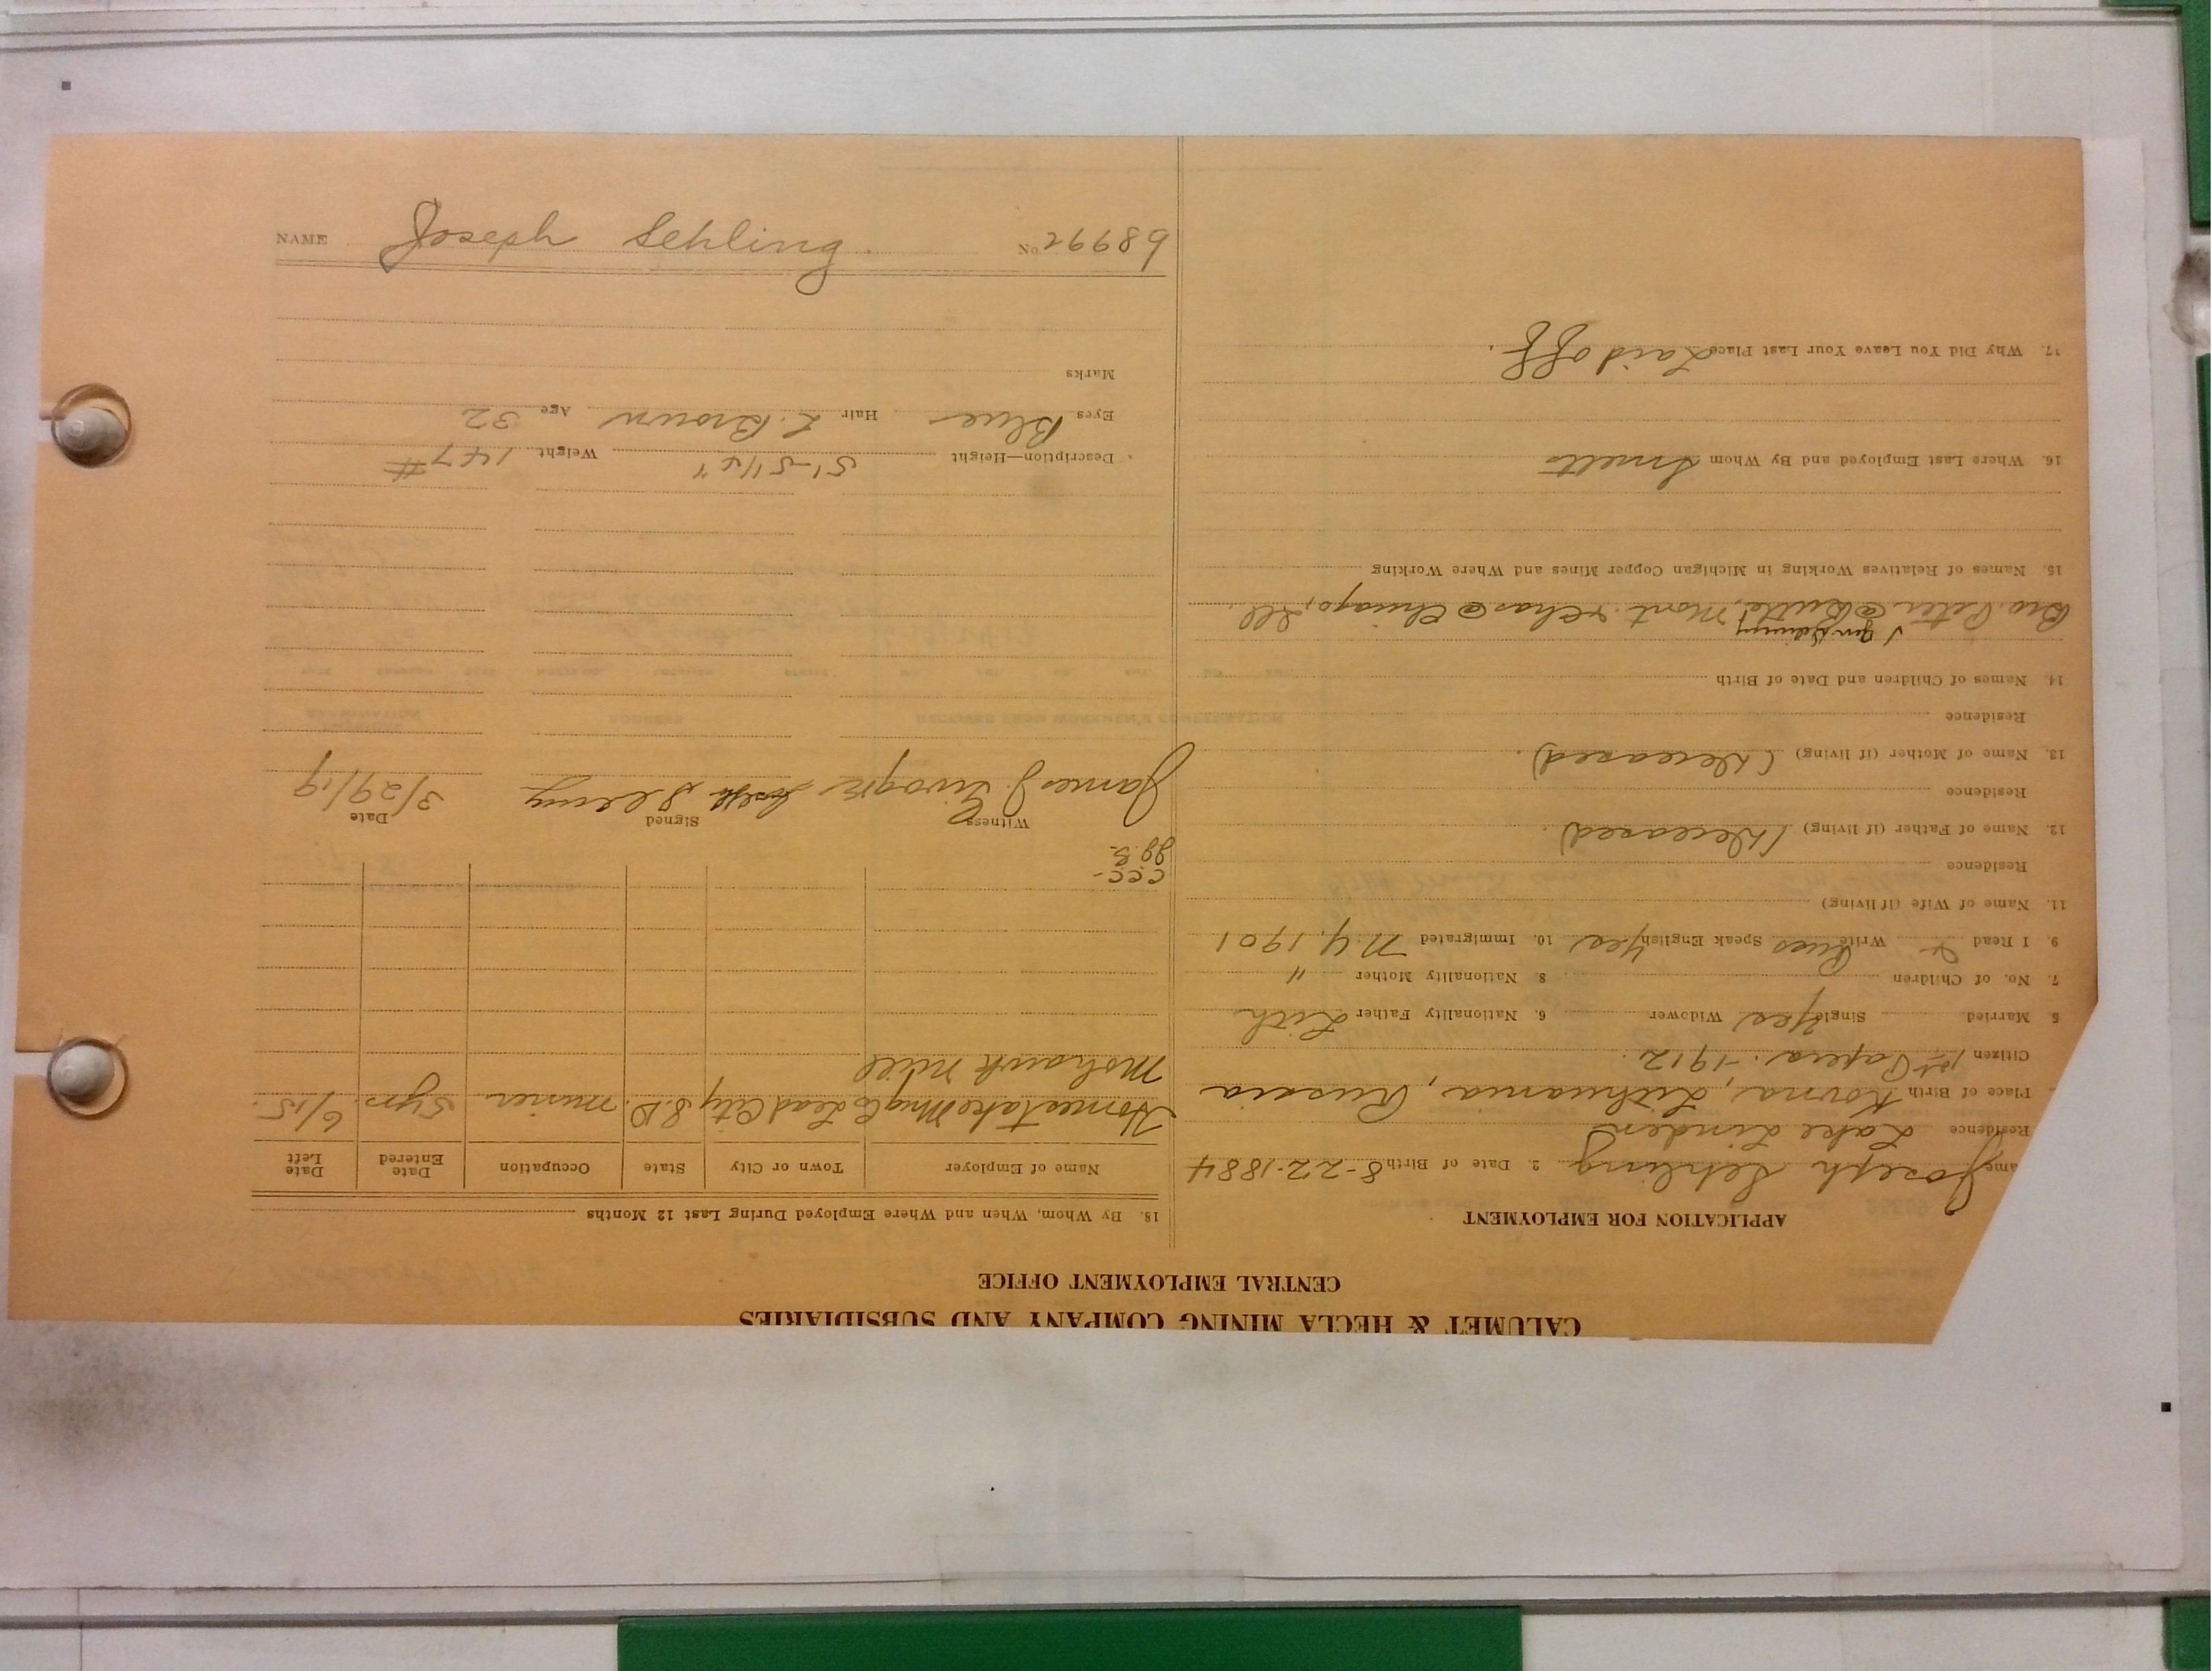 CALUMET & HECLA MINING COMPANY AND SUBSIDIARIES
CENTRAL EMPLOYMENT OFFICE
APPLICATION FOR EMPLOYMENT
ame Joseph Sehling 2. Date of Birth 8-22-1884
Residence Lake Linden
Place of Birth Kovna, Lithuania, Russia
Citizen 1st Papers. -1912.
5. Married Single Yes Widower 6. Nationality Father Lith
7. No. of Children 8 Nationality Mother "
9. I Read & Write Russ Speak English Yes 10. Immigrated N.Y. 1901
11. Name of Wife (if living)
Residence
12. Name of Father (if living) (Deceased).
Residence
13. Name of Mother (if living) (Deceased).
Residence
14. Names of Children and Date of Birth
Bro. Peter @ Butte, Mont. & Chas @ Chicago, Ill.
15. Names of Relatives Working in Michigan Copper Mines and Where Working
16. Where Last Employed and By Whom Smelts
17. Why Did You Leave Your Last Place Laid off.
18. By Whom, When and Where Employed During Last 12 Months
Name of Employer Town or City State Occupation Date Entered Date Left
Homestake Mng Co Lead City S.D. miner 5 yrs. 6/15
Mohawk Mill
C.C.C.-
Witness Signed Date
James J. Joseph 3/29/19
Description—Height 5'-5 1/2" Weight 147 #
Eyes Blue Hair L. Brown Age 32
Marks
NAME Joseph Sehling. No. 68992